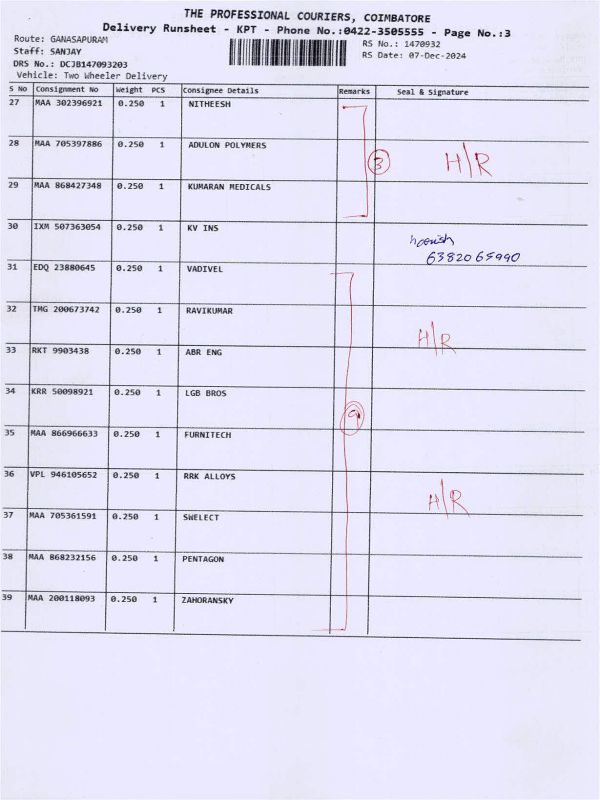 THE PROFESSIONAL COURIERS, COIMBATORE
Delivery Runsheet - KPT - Phone No.:0422-3505555 - Page No.:3
Route: GANASAPURAM
RS No.: 1470932
Staff: SANJAY
RS Date: 07-Dec-2024
DRS No.: DCJB147093203
Vehicle: Two Wheeler Delivery
S No Consignment No Weight PCS Consignee Details Remarks Seal & Signature
27 MAA 302396921 0.250 1 NITHEESH
28 MAA 705397886 0.250 1 ADULON POLYMERS
3 H/R
29 MAA 868427348 0.250 1 KUMARAN MEDICALS
30 IXM 507363054 0.250 1 KV INS
6382065990
31 EDQ 23880645 0.250 1 VADIVEL
32 TMG 200673742 0.250 1 RAVIKUMAR
H/R
33 RKT 9903438 0.250 1 ABR ENG
34 KRR 50098921 0.250 1 LGB BROS
9
35 MAA 866966633 0.250 1 FURNITECH
36 VPL 946105652 0.250 1 RRK ALLOYS
H/R
37 MAA 705361591 0.250 1 SWELECT
38 MAA 868232156 0.250 1 PENTAGON
39 MAA 200118093 0.250 1 ZAHORANSKY